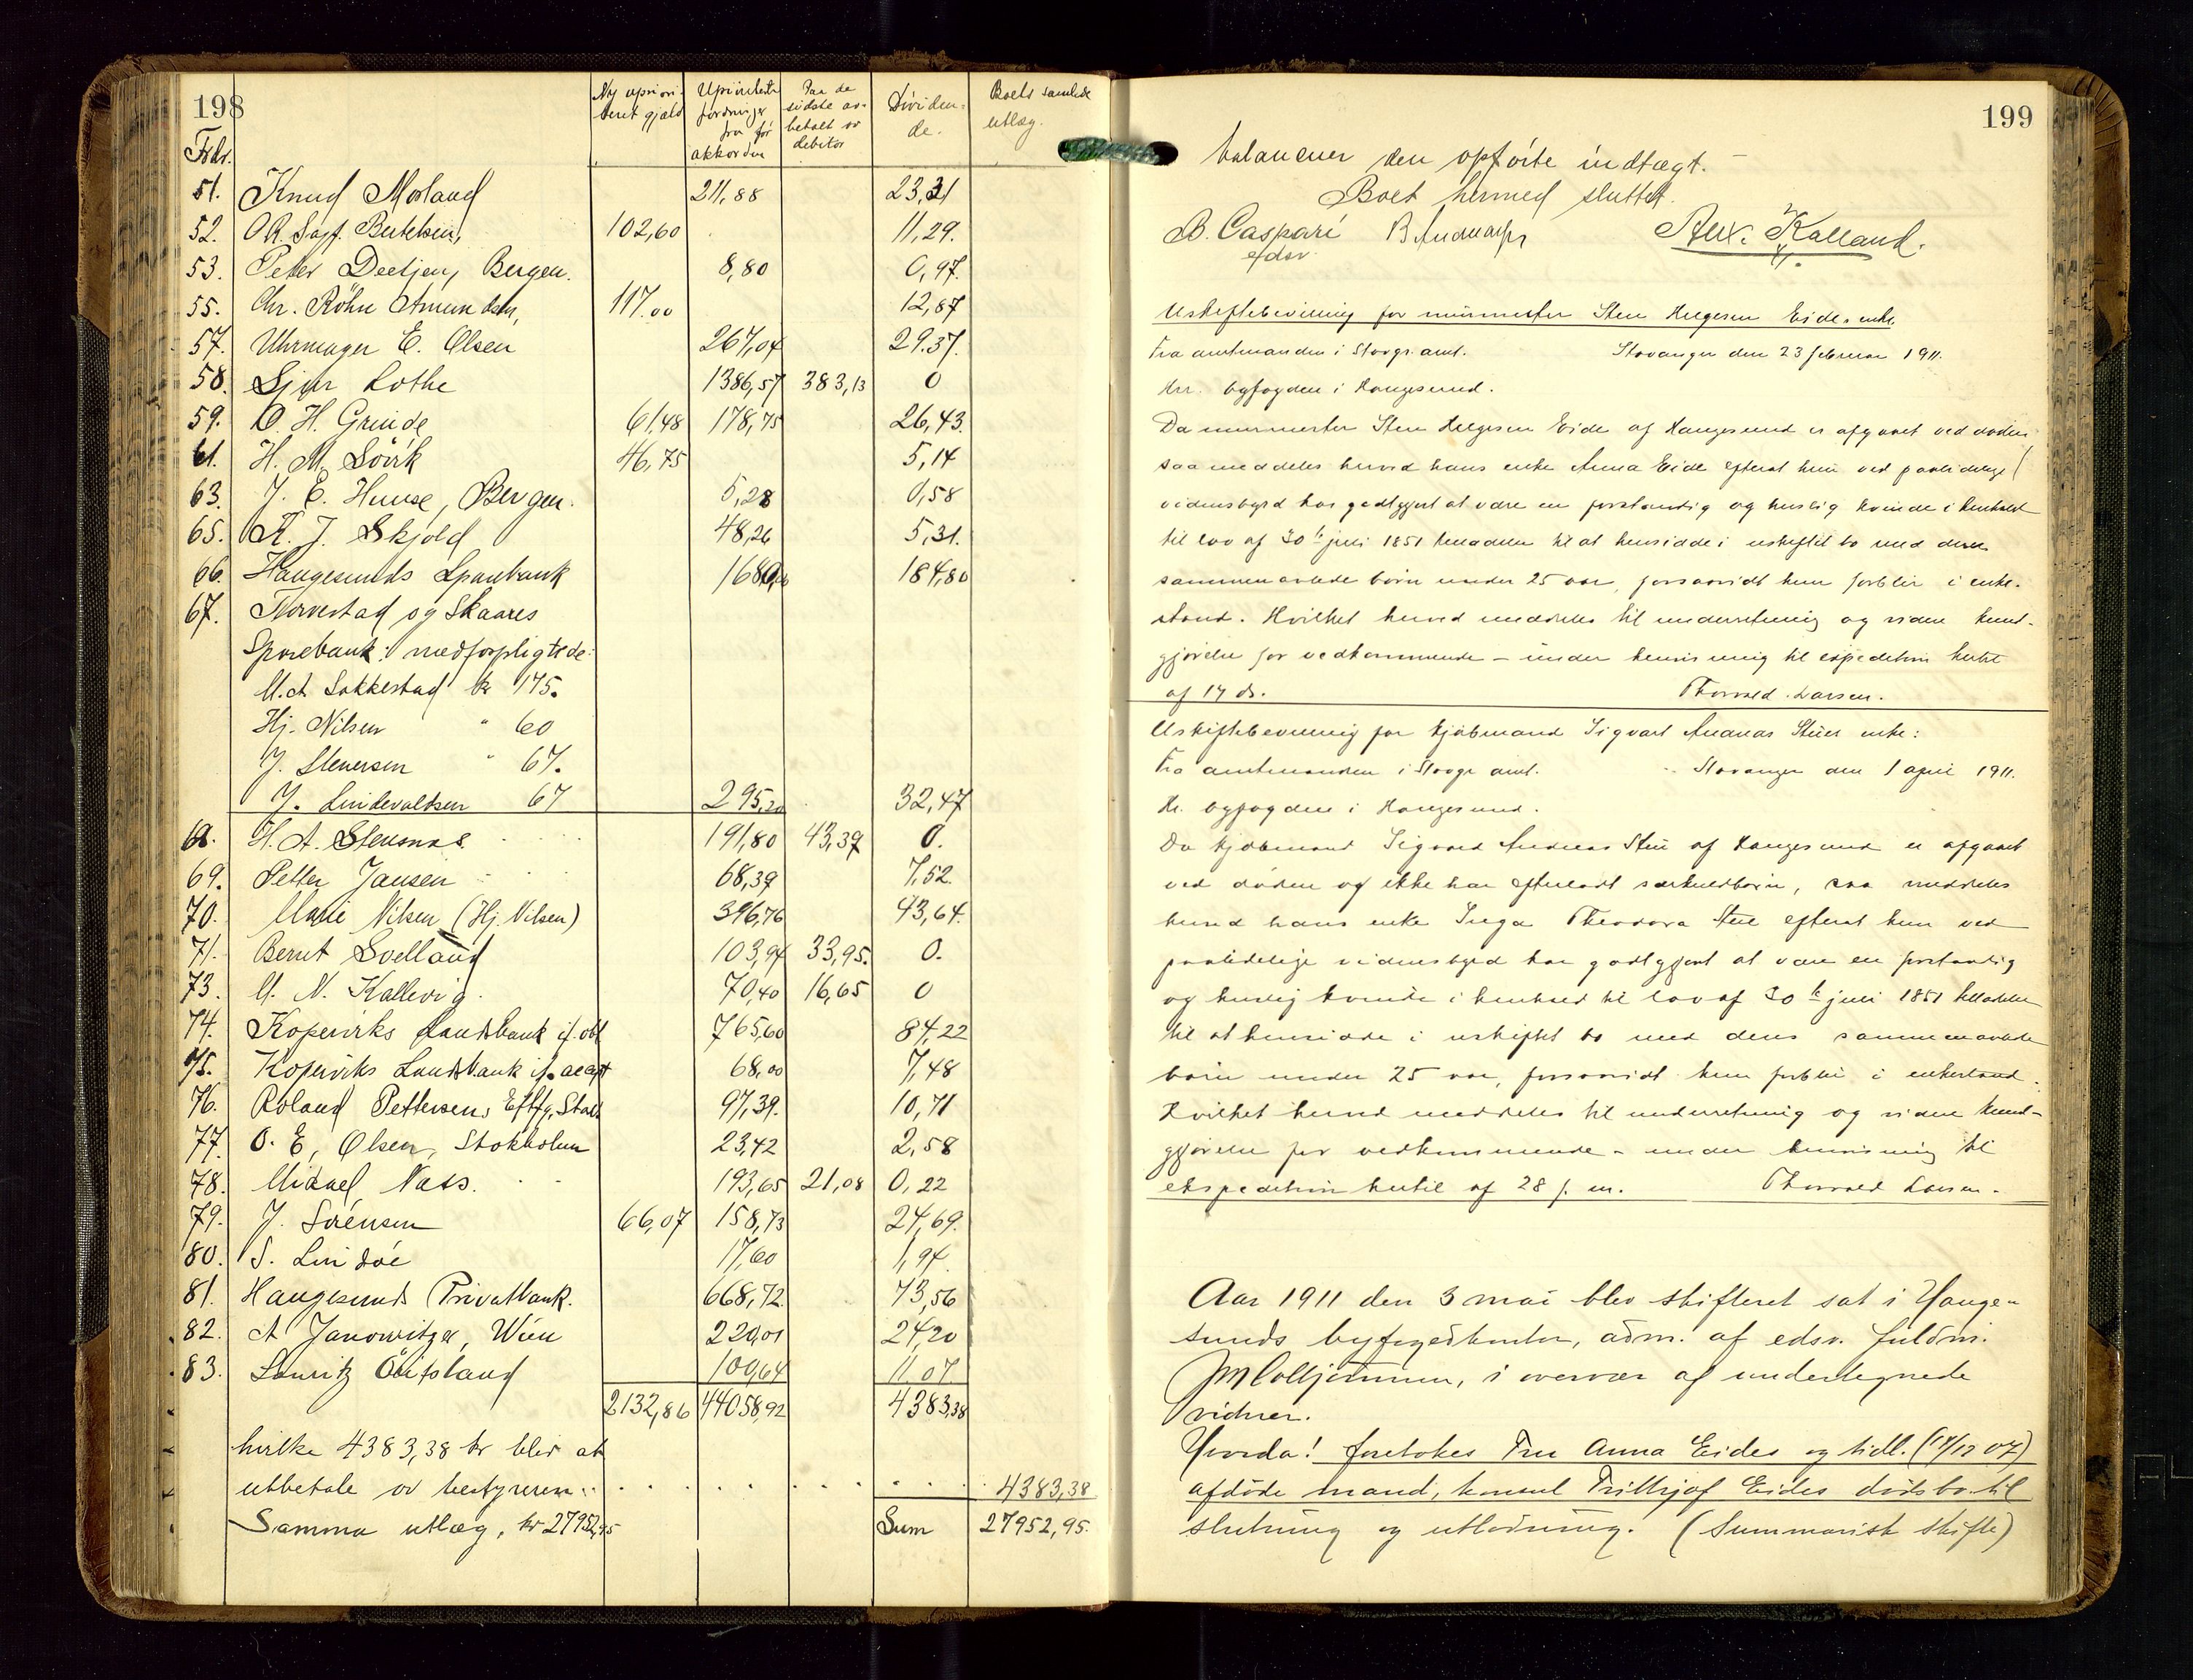 198
Fdr.
Ny uprioriteret gjæld
Uprioriterte fordringer fra før akkorden
Paa de sidste av- betalt av debitor
Dividende.
Boets samlede utlæg.
51. Knud Mosland 211,88 23,31
52. 102,60 11,29.
53. Peter Deetjen, Bergen. 8,80 0,97.
55. Chr. Röhn Amundsen, 117,00 12,87
57. Uhrmager E. Olsen 267,04 29.37.
58. Sjur Lothe 1386,57 383,13 0
59. O. H. Grinde 61,48 178,75 26,43.
61. H. M. Sövik 46,75 5,14
63. J. E. Huuse, Bergen. 5,28 0,58
65. K. J. Skjold 48,26 5,31.
66. Haugesunds Sparebank 1680,00 184,80
67. Torvestad og Skaares
Sparebank: medforpligtede:
M. A. Sakkestad kr 175.
Hj. Nilsen " 60
J. Stenersen " 67.
J. Lindevaldsen 67 295,20 32,47
68. H. A. Stensnæs 191,80 43,37 0.
69. Petter Jansen 68,39 7,52.
70. Marie Nilsen (Hj. Nilsen) 396,76 43,64.
71. Bernt Sveland 103,94 33,95. 0.
73. M. N. Kallevig. 70,40 16,65 0
74. Kopervirks Landsbank if. obl 765,60 84,22
75. Kopervirks Landsbank if. acept 68,00 7,48
76. Roland Pettersens Eftfg, 97,39. 10,71
77. O. E, Olsen, Stokholm 23,42 2,58
78. Mikael Næss. 193,65 21,08 0,22
79. J. Sörensen 66,07 158,73 24,69.
80. S. Lindöe 17,60 1,94
81. Haugesunds Privatbank. 668,72. 73,56
82. A Janowitzer, Wien 220,01 24,20
83. Lauritz 100,64 11,07
2132,86 44058,92 4383,38
hvilke 4383,38 kr blir at
utbetale av bestyreren 4383,38
Samma utlæg, kr 27952,95 Sum 27952,95.
199
balancerer den opförte indtægt.
Boet hermed sluttet.
B. Caspari
edsv.
Alex. Kalland.
Uskiftebevilling for murmester Sten Helgesen Eides enke.
Fra amtmanden i Stavgr. amt. Stavanger den 23 februar 1911.
Hr. byfogden i Haugesund.
Da murmester Sten Helgesen Eide af Haugesund er afgaaet ved døden
saa meddeles herved hans enke Anna Eide efterat hun ved paalidelige
vidnesbyrd har godtgjort at være en forstandig og huslig kvinde i henhold
til lov af 30te juli 1851 tilladelse til at hensidde i uskiftet bo med deres
sammenavlede børn under 25 aar, forsaavidt hun forblir i enke-
stand. Hvilket herved meddeles til underretning og videre kund-
gjørelse for vedkommende – under henvisning til expedition hertil
af 17 ds. Thorvald Larsen.
Uskiftebevilling for kjøbmand Sigvart Andreas Steies enke:
Fra amtmanden i Stavgr. amt. Stavanger den 1 april 1911.
Hr. byfogden i Haugesund.
Da kjøbmand Sigvard Andreas Stei af Haugesund er afgaaet
ved døden og ikke har efterladt særkuldbørn, saa meddeles
herved hans enke Inga Theodora Steie efterat hun ved
paalidelige vidnesbyrd har godtgjort at være en forstandig
og huslig kvinde i henhold til lov af 30te juli 1851 tilladelse
til at hensidde i uskiftet bo med deres sammenavlede
børn under 25 aar, forsaavidt hun forblir i enkestand.
Hvilket herved meddeles til underretning og videre kund-
gjørelse for vedkommende – under henvisning til
ekspedition hertil af 28 f. m. Thorvald Larsen.
Aar 1911 den 3 mai blev skifteret sat i Hauge-
sunds byfogedkontor, adm. af edsv. fuldm.
i overvær af undertegnede
vidner.
Hvorda! foretokes Fru Anna Eides og tidl. (14/12 07)
afdöde mand, konsul Frithjof Eides dödsbo til
slutning og utlodning. (Summarisk skifte)